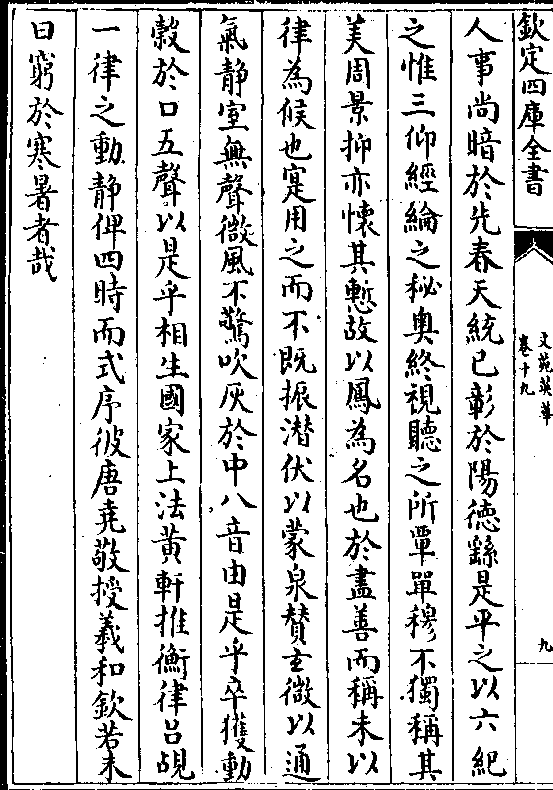 欽定四庫全書
文苑英華
卷十九
九
人事尚暗於先春天統已彰於陽德繇是平之以六紀
之惟三仰經綸之秘奥終視聽之所覃單穆不獨稱其
美周景抑亦懐其慙故以鳳為名也於盡善而稱未以
律為候也寔用之而不既振潜伏以蒙泉賛玄微以通
氣静室無聲微風不驚吹灰於中八音由是乎卒獲動
縠於口五聲以是乎相生國家上法黄軒推衡律吕覘
一律之動静俾四時而式序彼唐堯敬授羲和欽若未
日窮於寒暑者哉